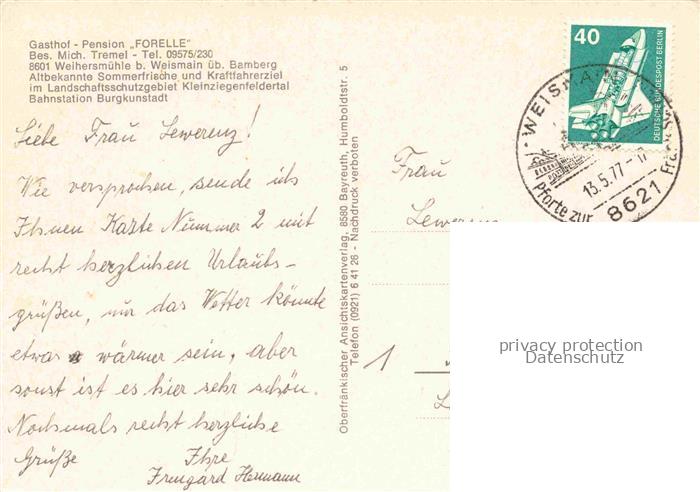 Gasthof - Pension „FORELLE"
Bes. Mich. Tremel - Tel. 09575/230
8601 Weihersmühle b. Weismain üb. Bamberg
Altbekannte Sommerfrische und Kraftfahrerziel
im Landschaftsschutzgebiet Kleinziegenfeldertal
Bahnstation Burgkunstadt
Liebe Frau Lewerenz!
Wie versprochen, sende ich
Ihnen Karte Nummer 2 mit
recht herzlichen Urlaubs-
grüßen, nur das Wetter könnte
etwas wärmer sein, aber
sonst ist es hier sehr schön.
Nochmals recht herzliche
Grüße Ihre
Irmgard Hermann
Oberfränkischer Ansichtskartenverlag, 8580 Bayreuth, Humboldtstr. 5
Telefon (0921) 6 41 26 - Nachdruck verboten
40
DEUTSCHE BUNDESPOST BERLIN
13.5.77
Pforte zur
8621
Frau
1
privacy protection
Datenschutz